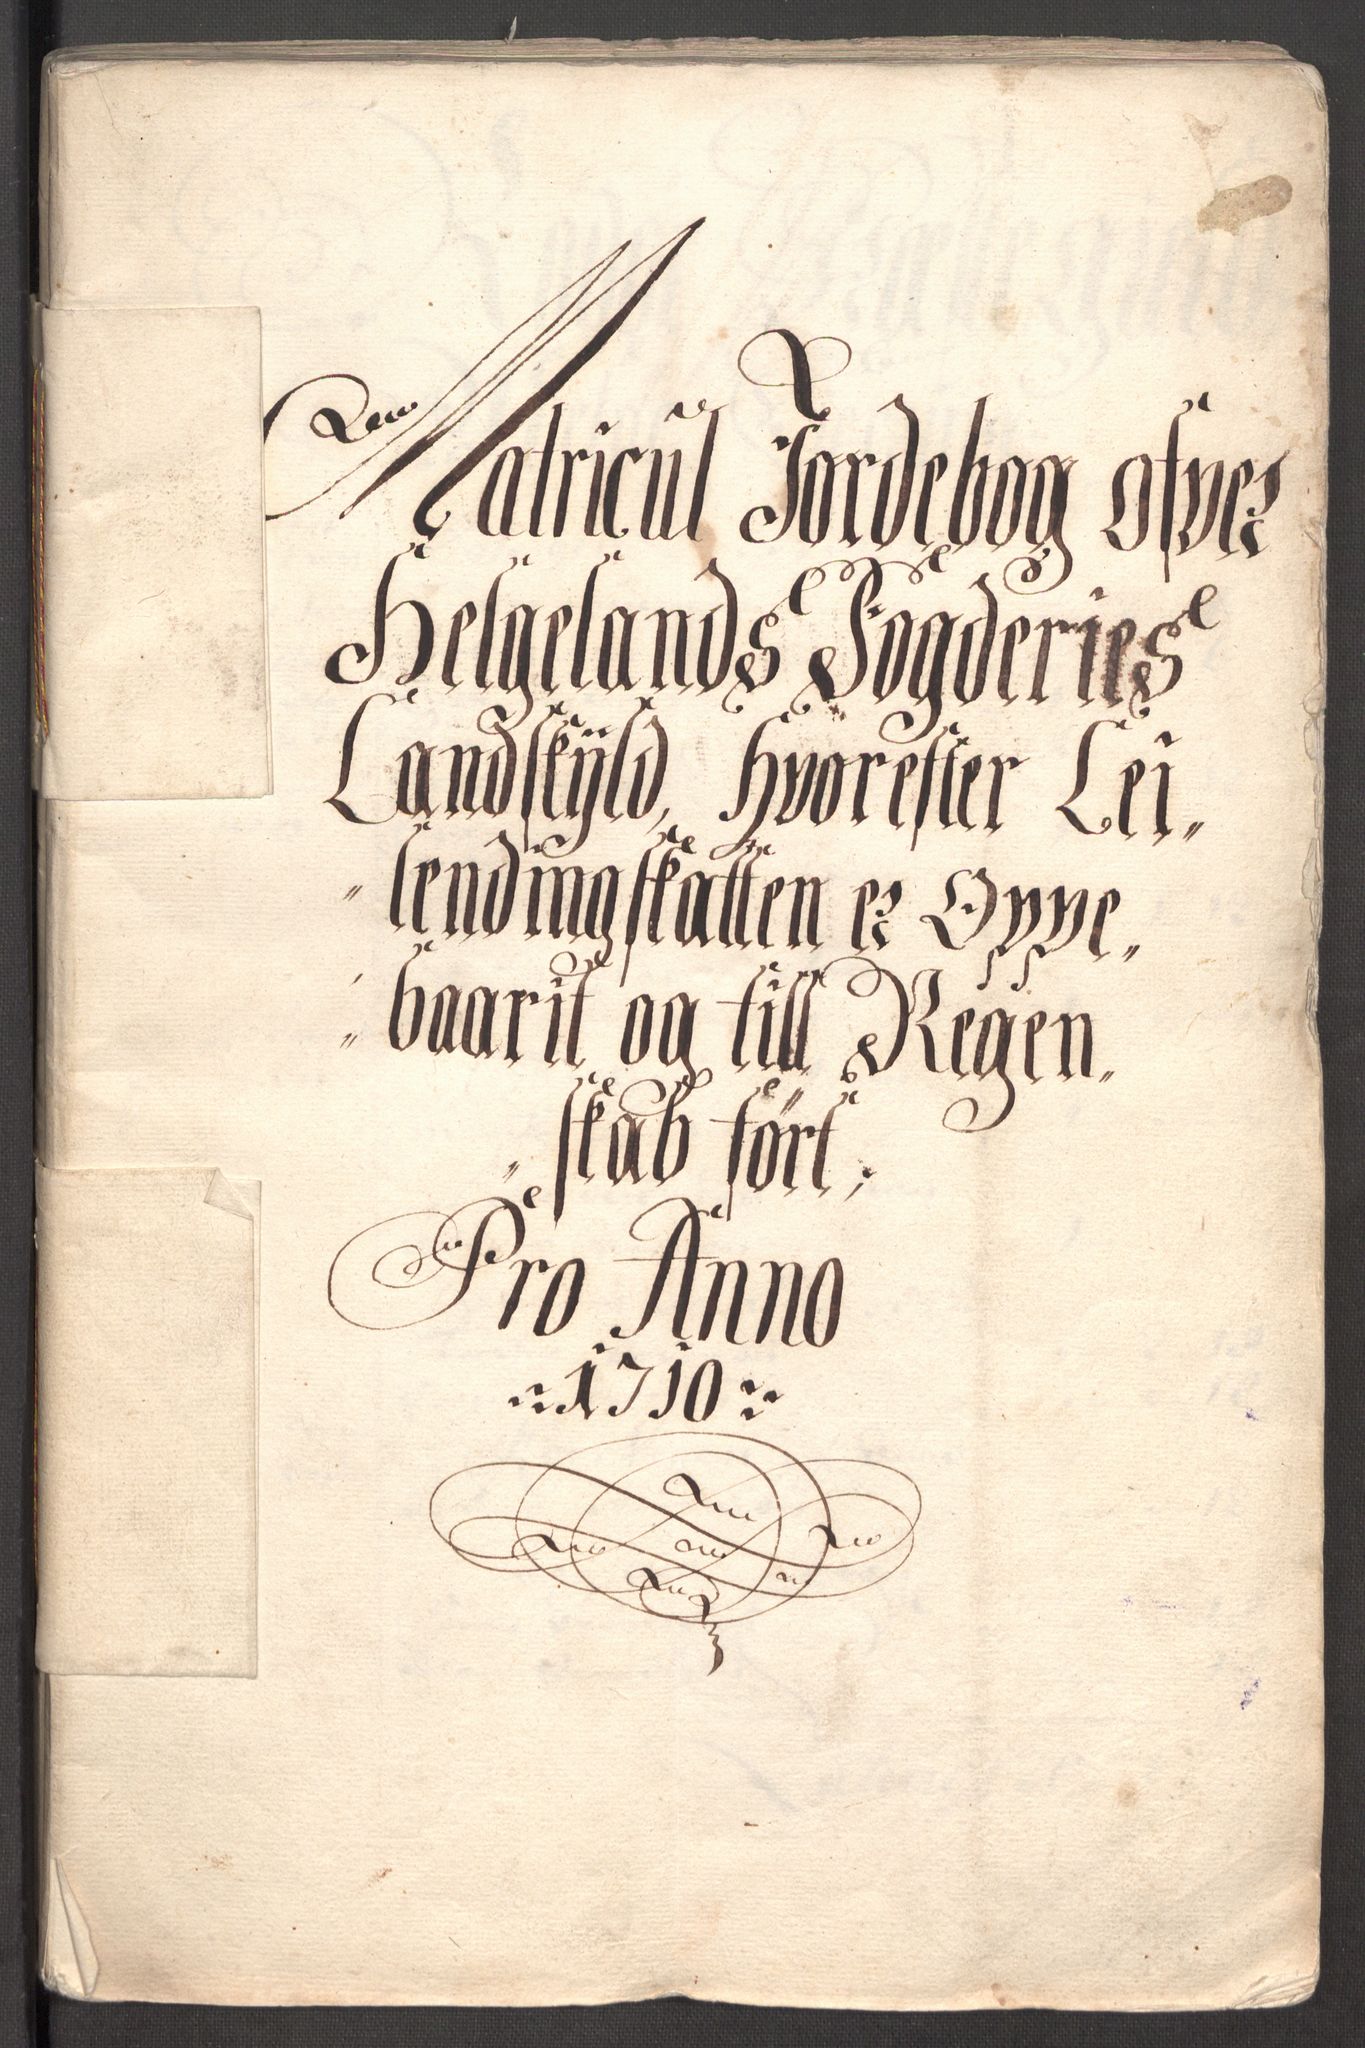 Matricul Jordebog ofver
Helgelands Fogderies
Landskÿld, Hvorefter Lei„
„lendingskatten er Oppe„
„baarit og till Regen„
„skab fört;
Pro Anno
1710